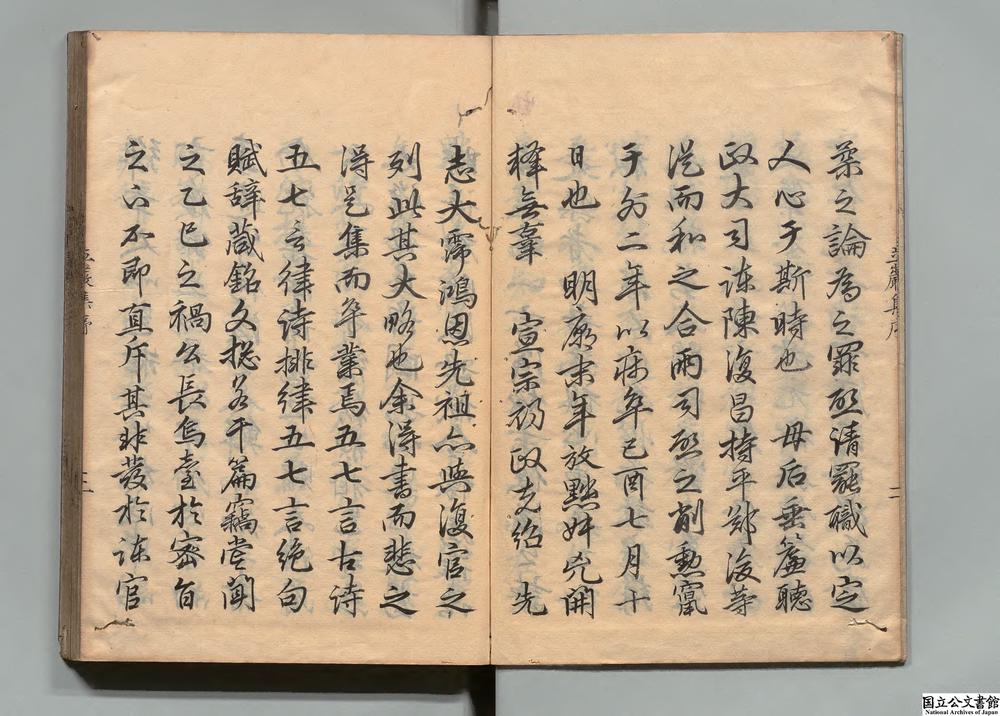 柔之論為之罪啓請罷職以定
人心于斯時也　母后垂簾聽
政大司諫陳復昌持平鄭浚等
從而和之合兩司啓之削勳竄
于外二年以病卒己酉七月十
日也　明廟末年放黜奸兇開
釋無辜　宣宗初政克紹　先
志大霈鴻恩先祖亦與復官之
列此其大略也余得書而悲之
得是集而卒業焉五七言古詩
五七言律詩排律五七言絶句
賦辞蔵銘文総若干篇竊嘗聞
之乙巳之禍公長烏臺於密旨
之下不即直斥其非發於諫官
國立公文書館
National Archives of Japan